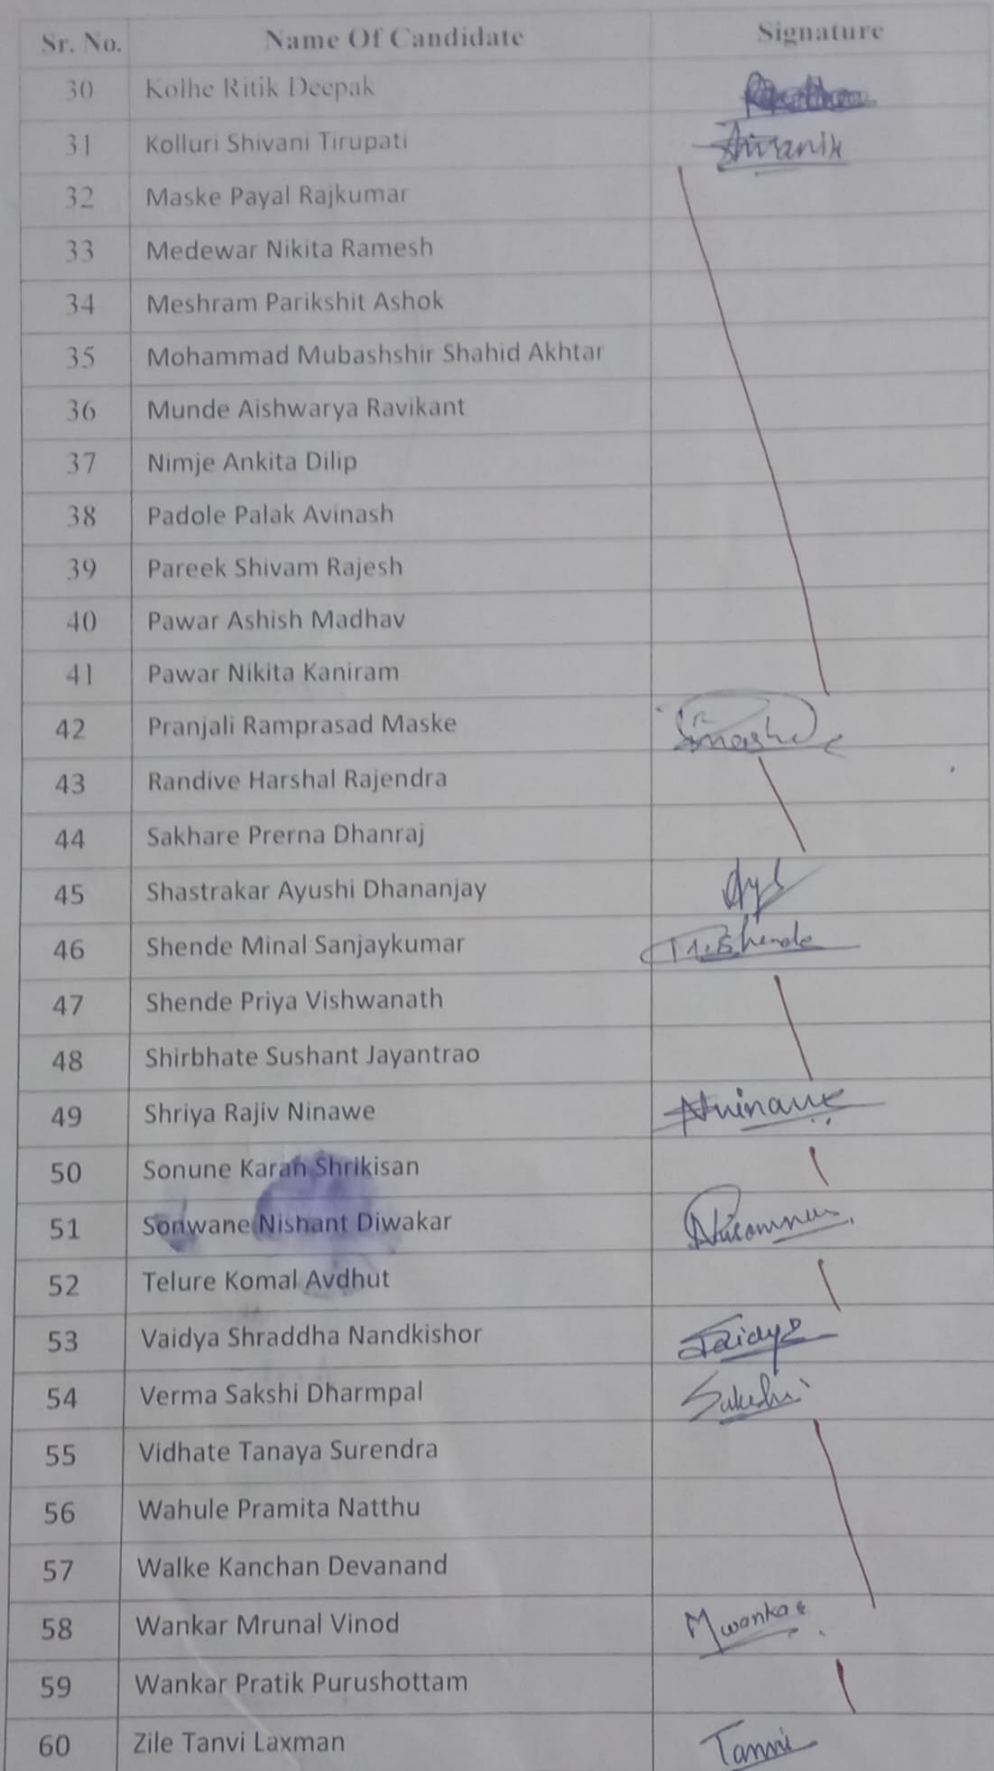 Sr. No. Name Of Candidate Signature
30 Kolhe Ritik Deepak
31 Kolluri Shivani Tirupati Shivanik
32 Maske Payal Rajkumar
33 Medewar Nikita Ramesh
34 Meshram Parikshit Ashok
35 Mohammad Mubashshir Shahid Akhtar
36 Munde Aishwarya Ravikant
37 Nimje Ankita Dilip
38 Padole Palak Avinash
39 Pareek Shivam Rajesh
40 Pawar Ashish Madhav
41 Pawar Nikita Kaniram
42 Pranjali Ramprasad Maske
43 Randive Harshal Rajendra
44 Sakhare Prerna Dhanraj
45 Shastrakar Ayushi Dhananjay
46 Shende Minal Sanjaykumar M.Shende
47 Shende Priya Vishwanath
48 Shirbhate Sushant Jayantrao
49 Shriya Rajiv Ninawe
50 Sonune Karan Shrikisan
51 Sonwane Nishant Diwakar
52 Telure Komal Avdhut
53 Vaidya Shraddha Nandkishor
54 Verma Sakshi Dharmpal Sakshi
55 Vidhate Tanaya Surendra
56 Wahule Pramita Natthu
57 Walke Kanchan Devanand
58 Wankar Mrunal Vinod Mwankar
59 Wankar Pratik Purushottam
60 Zile Tanvi Laxman Tanvi